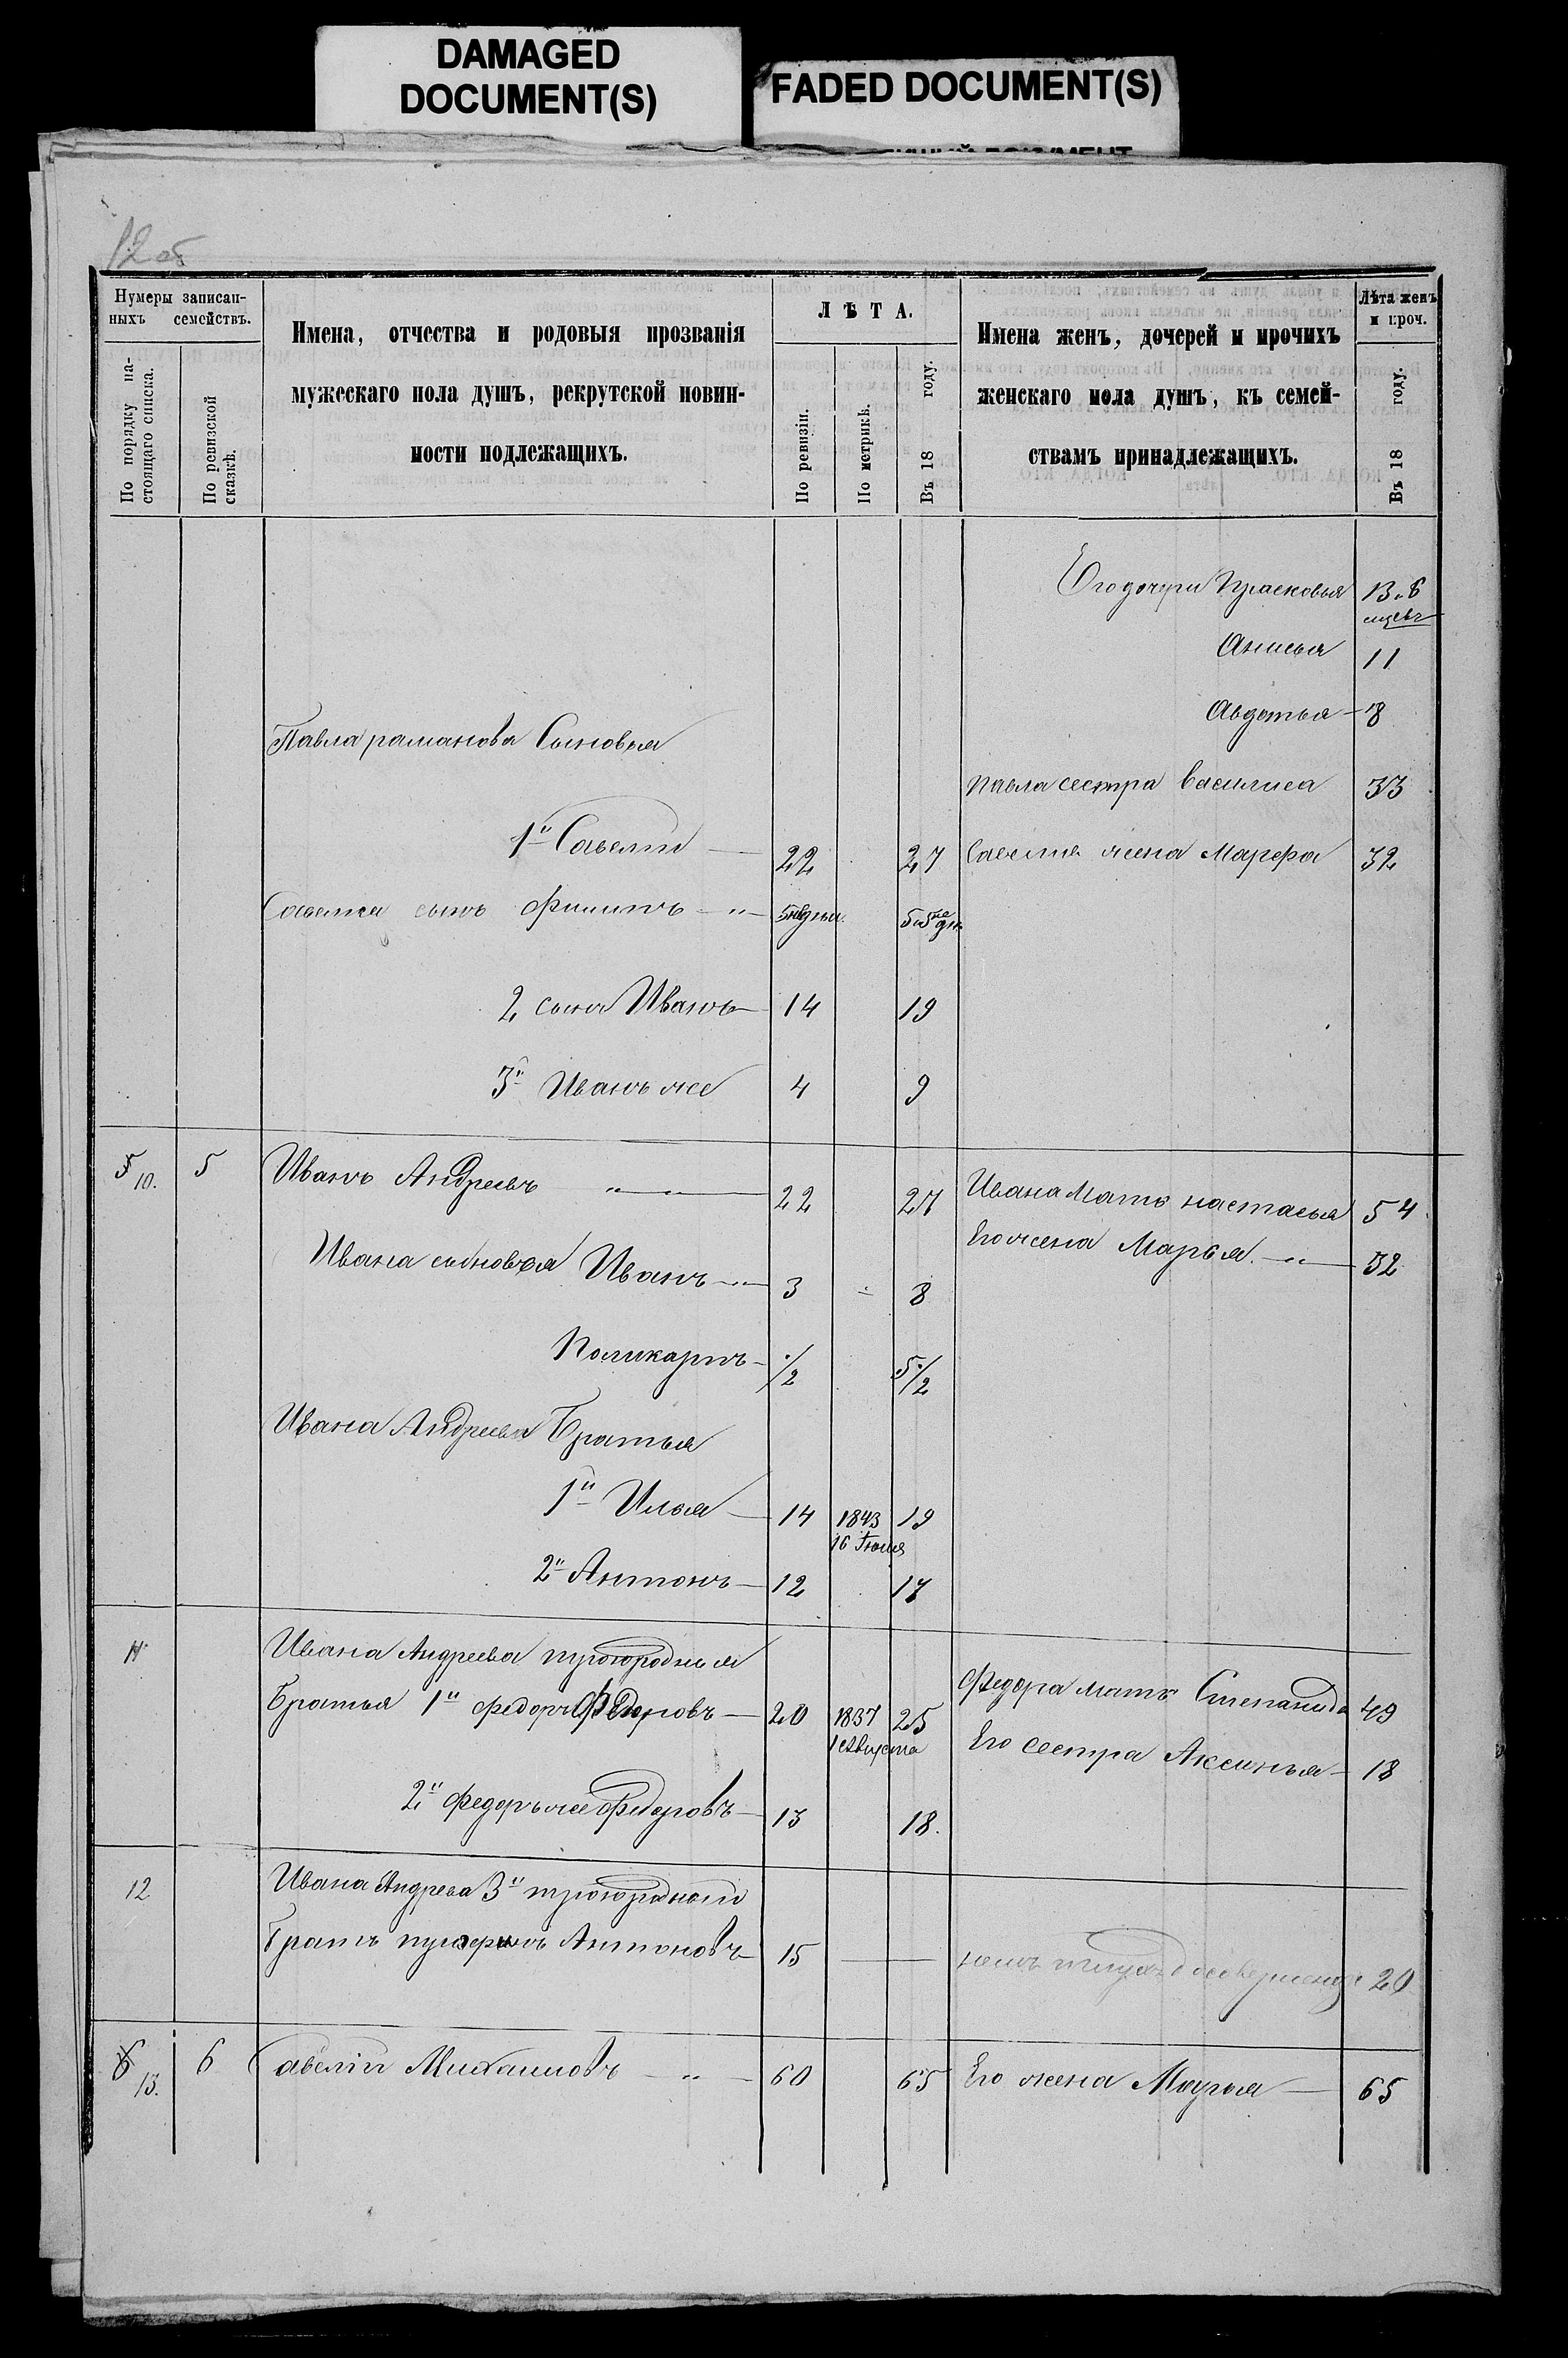 DAMAGED
DOCUMENT(S)
FADED DOCUMENT(S)
12 об
Нумеры записан-
ныхъ семействъ.
По порядку на-
стоящаго списка.
По ревизской
сказкѣ.
Имена, отчества и родовыя прозванія
мужескаго пола душъ, рекрутской повин-
ности подлежащихъ.
ЛѢТА.
По ревизіи.
По метрикѣ.
Въ 18 году.
Имена женъ, дочерей и прочихъ
женскаго пола душъ, къ семей-
ствамъ принадлежащихъ.
Лѣта женъ
и проч.
Въ 18 году.
Его дочери Прасковья 13 и 6
мцевъ
Анисья 11
Авдотья 8
Павла романова Сыновья
павла сестра василиса 33
1й Савелій 22 27 Савелия жена Марфа 32
Савелия сынъ филипъ 5 недель 5 и 5 не
дел
2 сынъ Иванъ 14 19
3й Иванъ же 4 9
5 10. 5 Иванъ Андреевъ 22 27 Ивана Мать настасья 54
Его жена Марья 32
Ивана сыновья Иванъ 3 8
Поликарпъ 1/2 5 1/2
Ивана Андреева Братья
1й Илья 14 1843 19
16 Июля
2й Антонъ 12 17
11 Ивана Андреева троюродныя
Братья 1й федоръ Федоровъ 20 1837 25 Федора мать Степанида 49
1 Августа
Его сестра Аксинья 18
2й федоръ же Федоровъ 13 18.
12 Ивана Андреева 3й троюродной
Братъ Антоновъ 15 20
6 13. 6 Савелій Михаиловъ 60 65 Его жена Марья 65